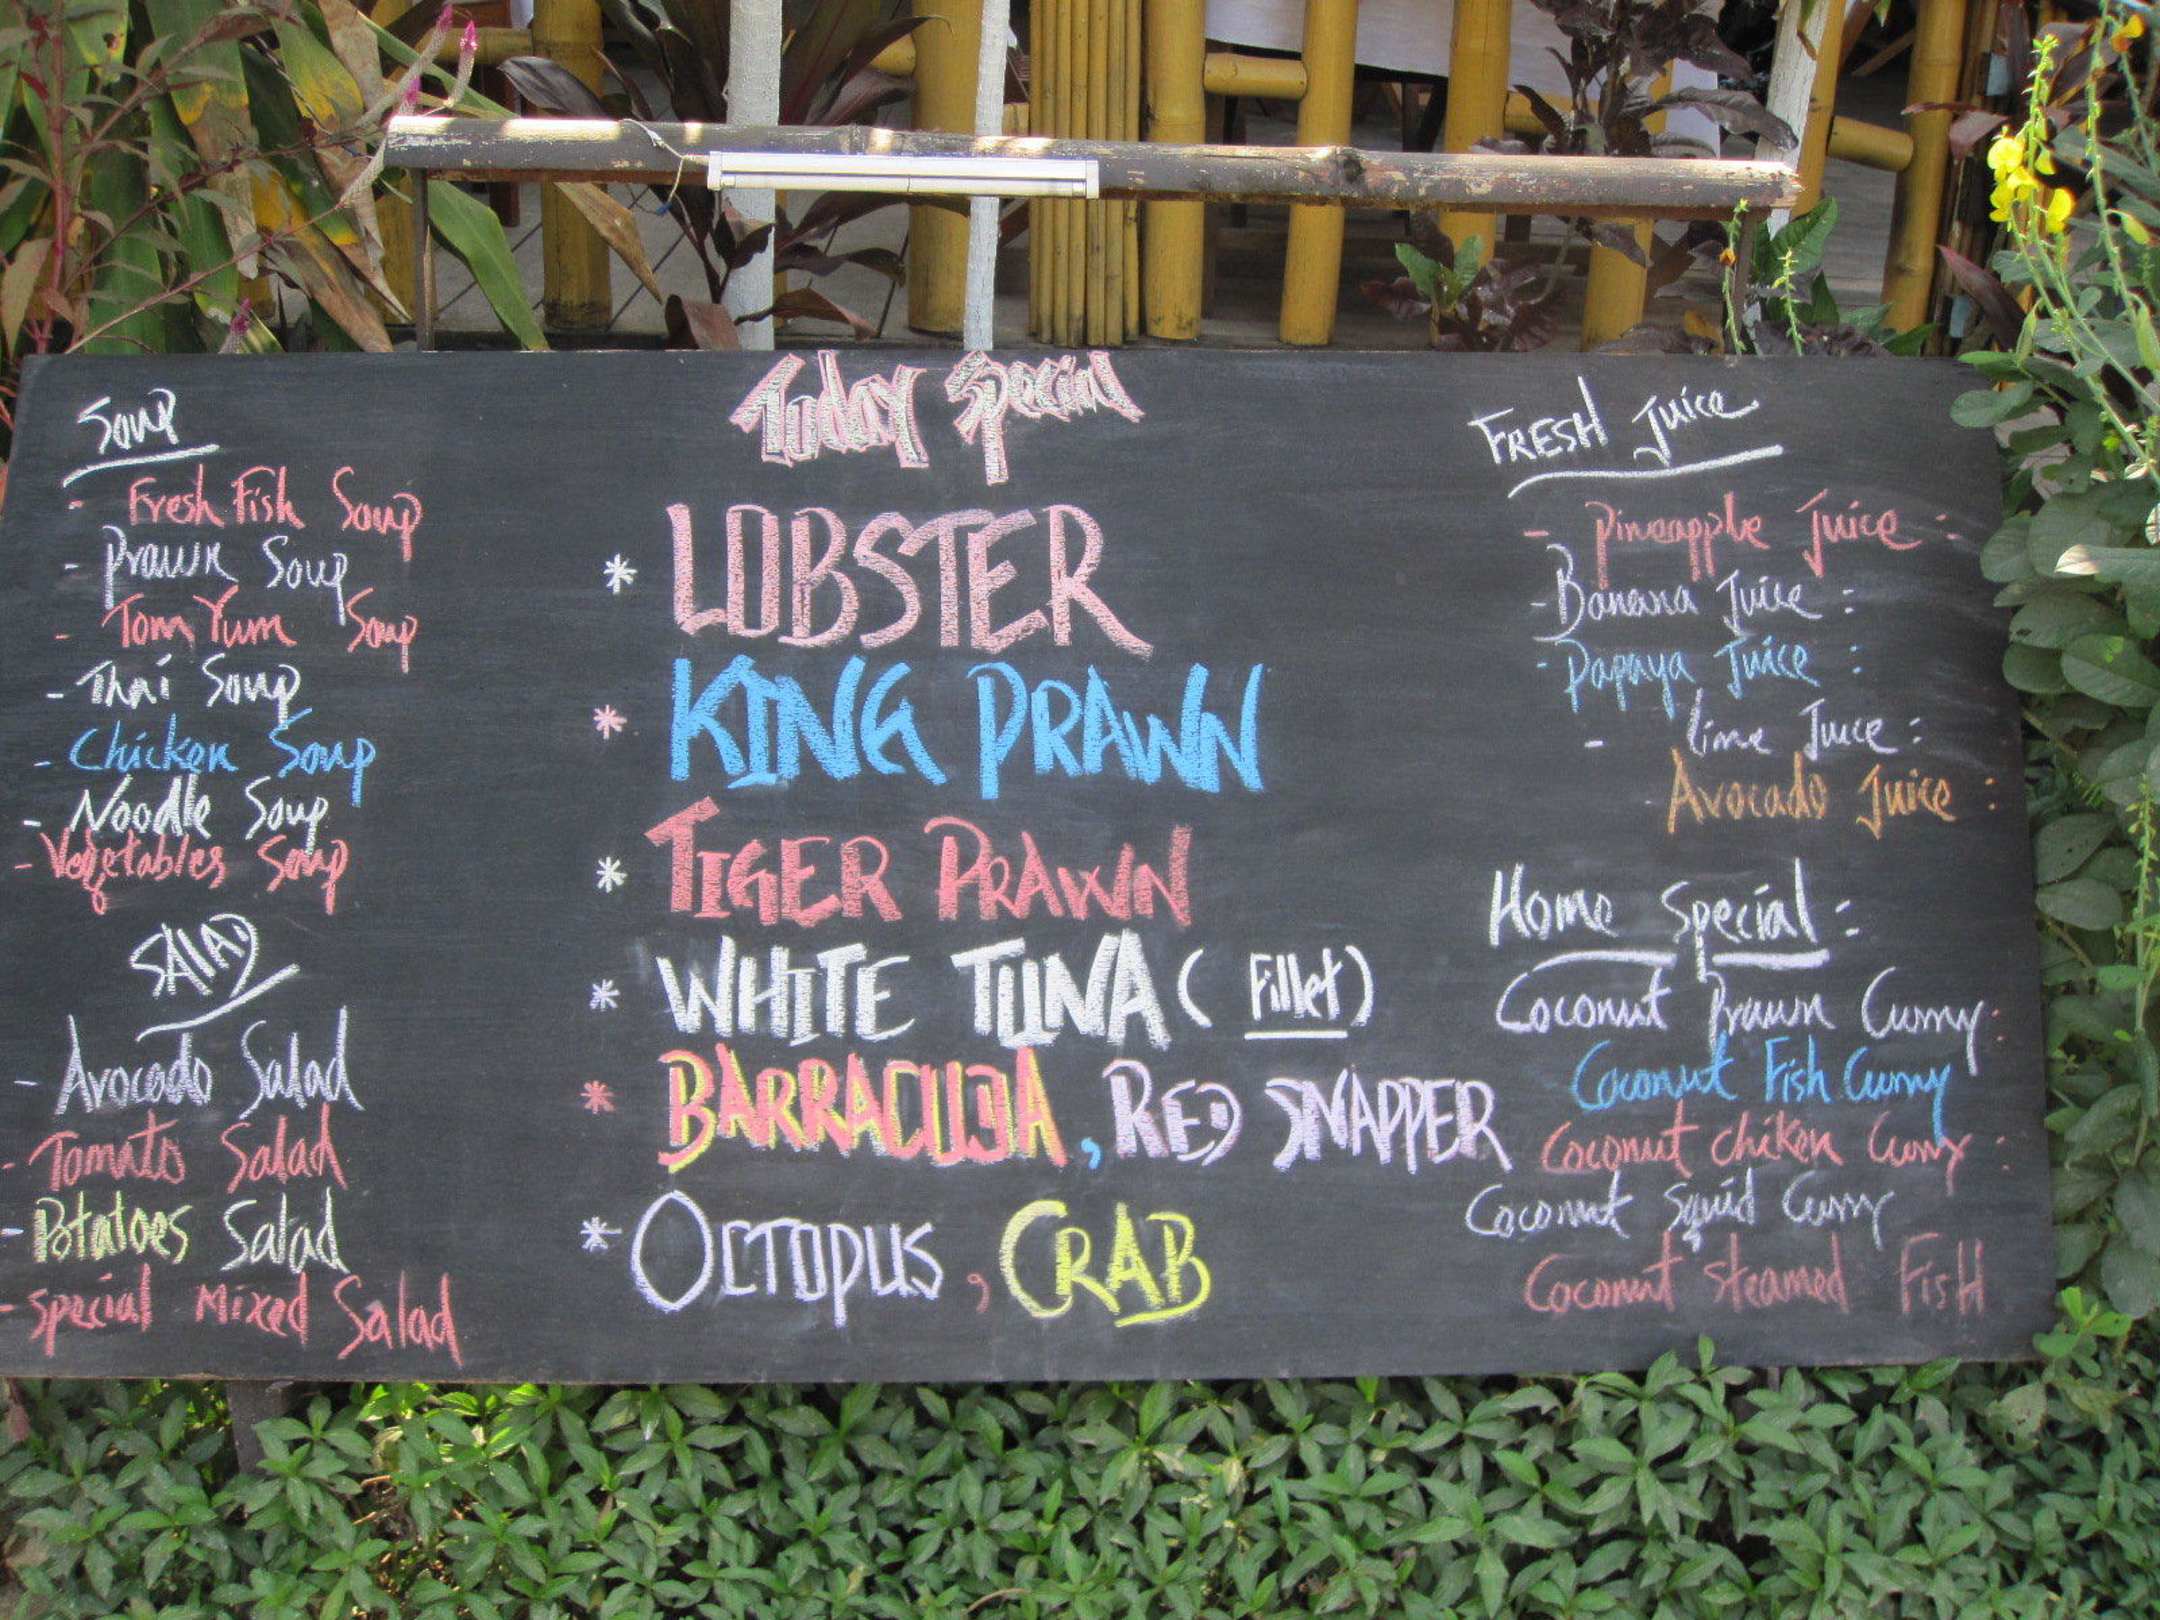 Soup
- Fresh Fish Soup
- Prawn Soup
- Tom Yum Soup
- Thai Soup
- Chicken Soup
- Noodle Soup
- Vegetables Soup
SAlAD
- Avocado Salad
- Tomato Salad
- Potatoes Salad
- Special Mixed Salad
Today Special
* LOBSTER
* KING PRAWN
* TIGER PRAWN
* WHITE TUNA (Fillet)
* BARRACUDA, RED SNAPPER
* OCTOPUS, CRAB
FRESH Juice
- Pineapple Juice :
- Banana Juice :
- Papaya Juice :
- lime Juice :
Avocado Juice :
Home Special :
Coconut Prawn Curry :
Coconut Fish Curry
Coconut chiken Curry :
Coconut squid Curry
Coconut steamed FisH